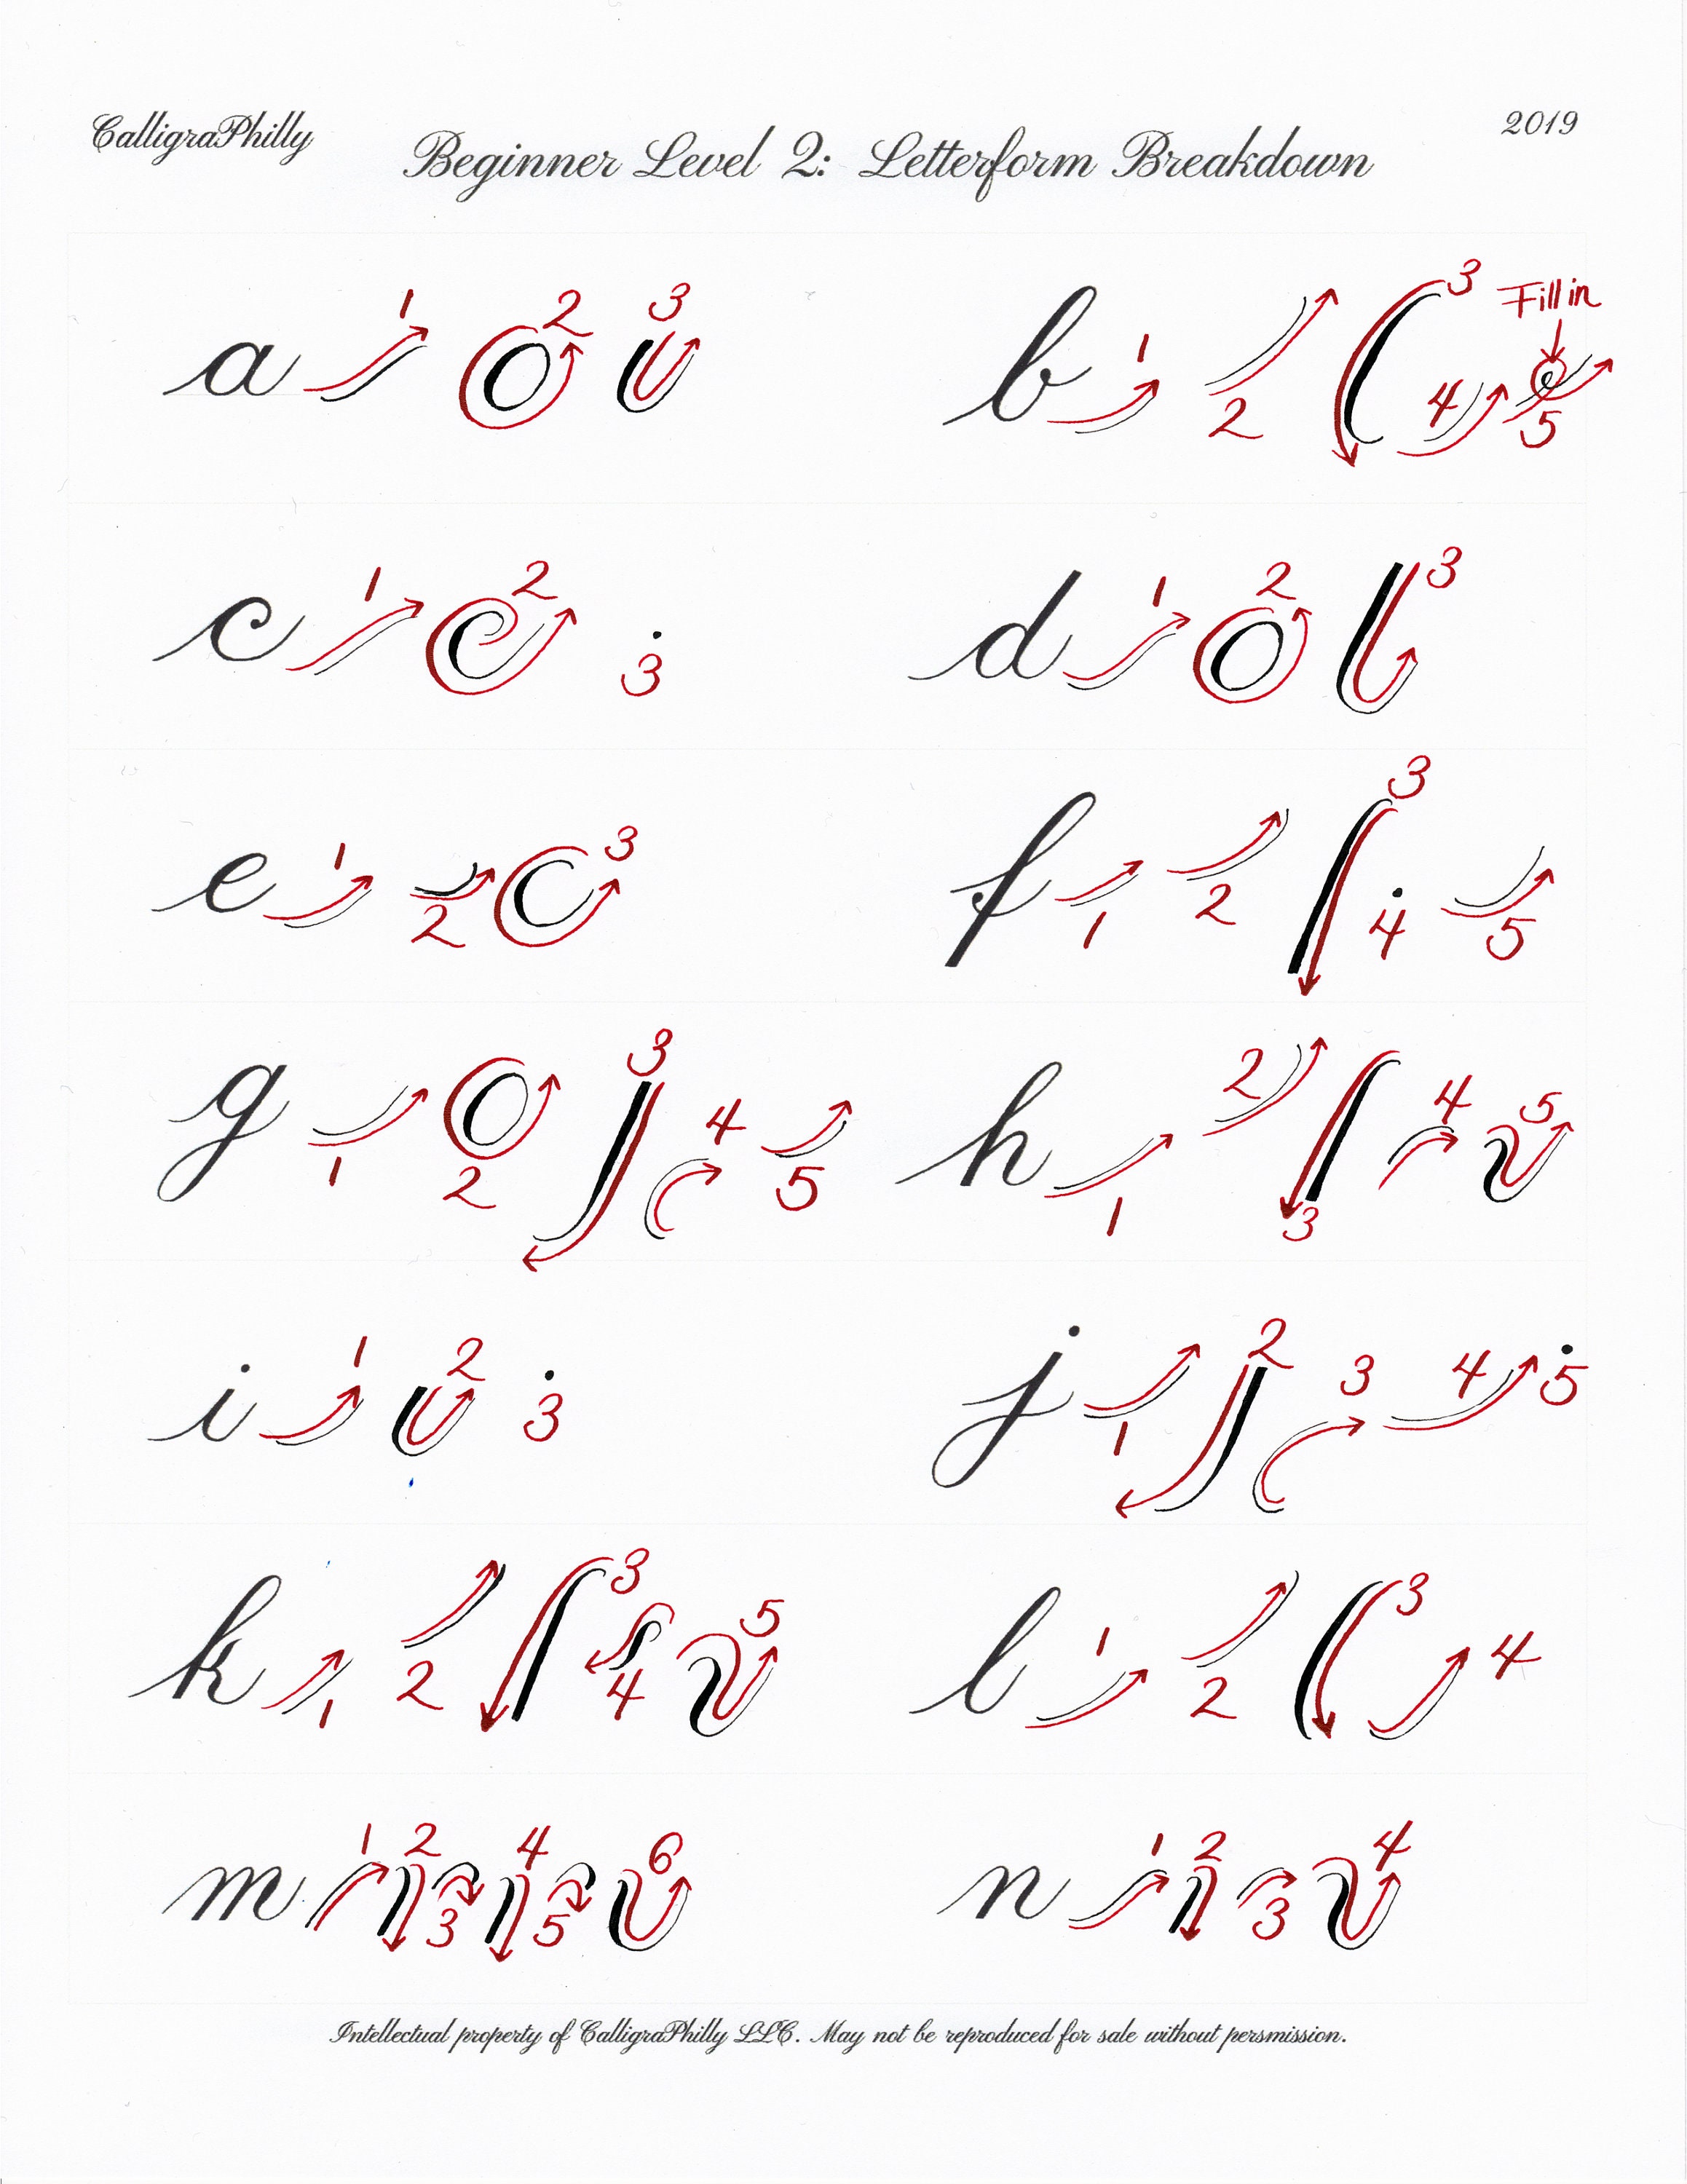 CalligraPhilly
2019
Beginner Level 2: Letterform Breakdown
a 1 2 3
b 1 2 3 4 5 Fill in
c 1 2 3
d 1 2 3
e 1 2 3
f 1 2 3 4 5
g 1 2 3 4 5
h 1 2 3 4 5
i 1 2 3
j 1 2 3 4 5
k 1 2 3 4 5
l 1 2 3 4
m 1 2 3 4 5 6
n 1 2 3 4
Intellectual property of CalligraPhilly LLC. May not be reproduced for sale without persmission.